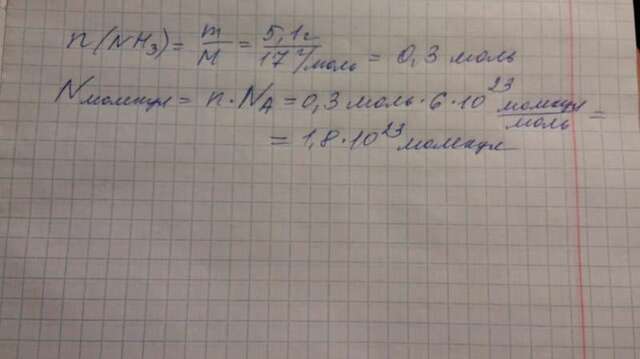 n(NH₃) = m/M = 5,1г/17 г/моль = 0,3 моль
Nмолекул = n · N_A = 0,3 моль · 6 · 10²³ молекул/моль =
= 1,8 · 10²³ молекул